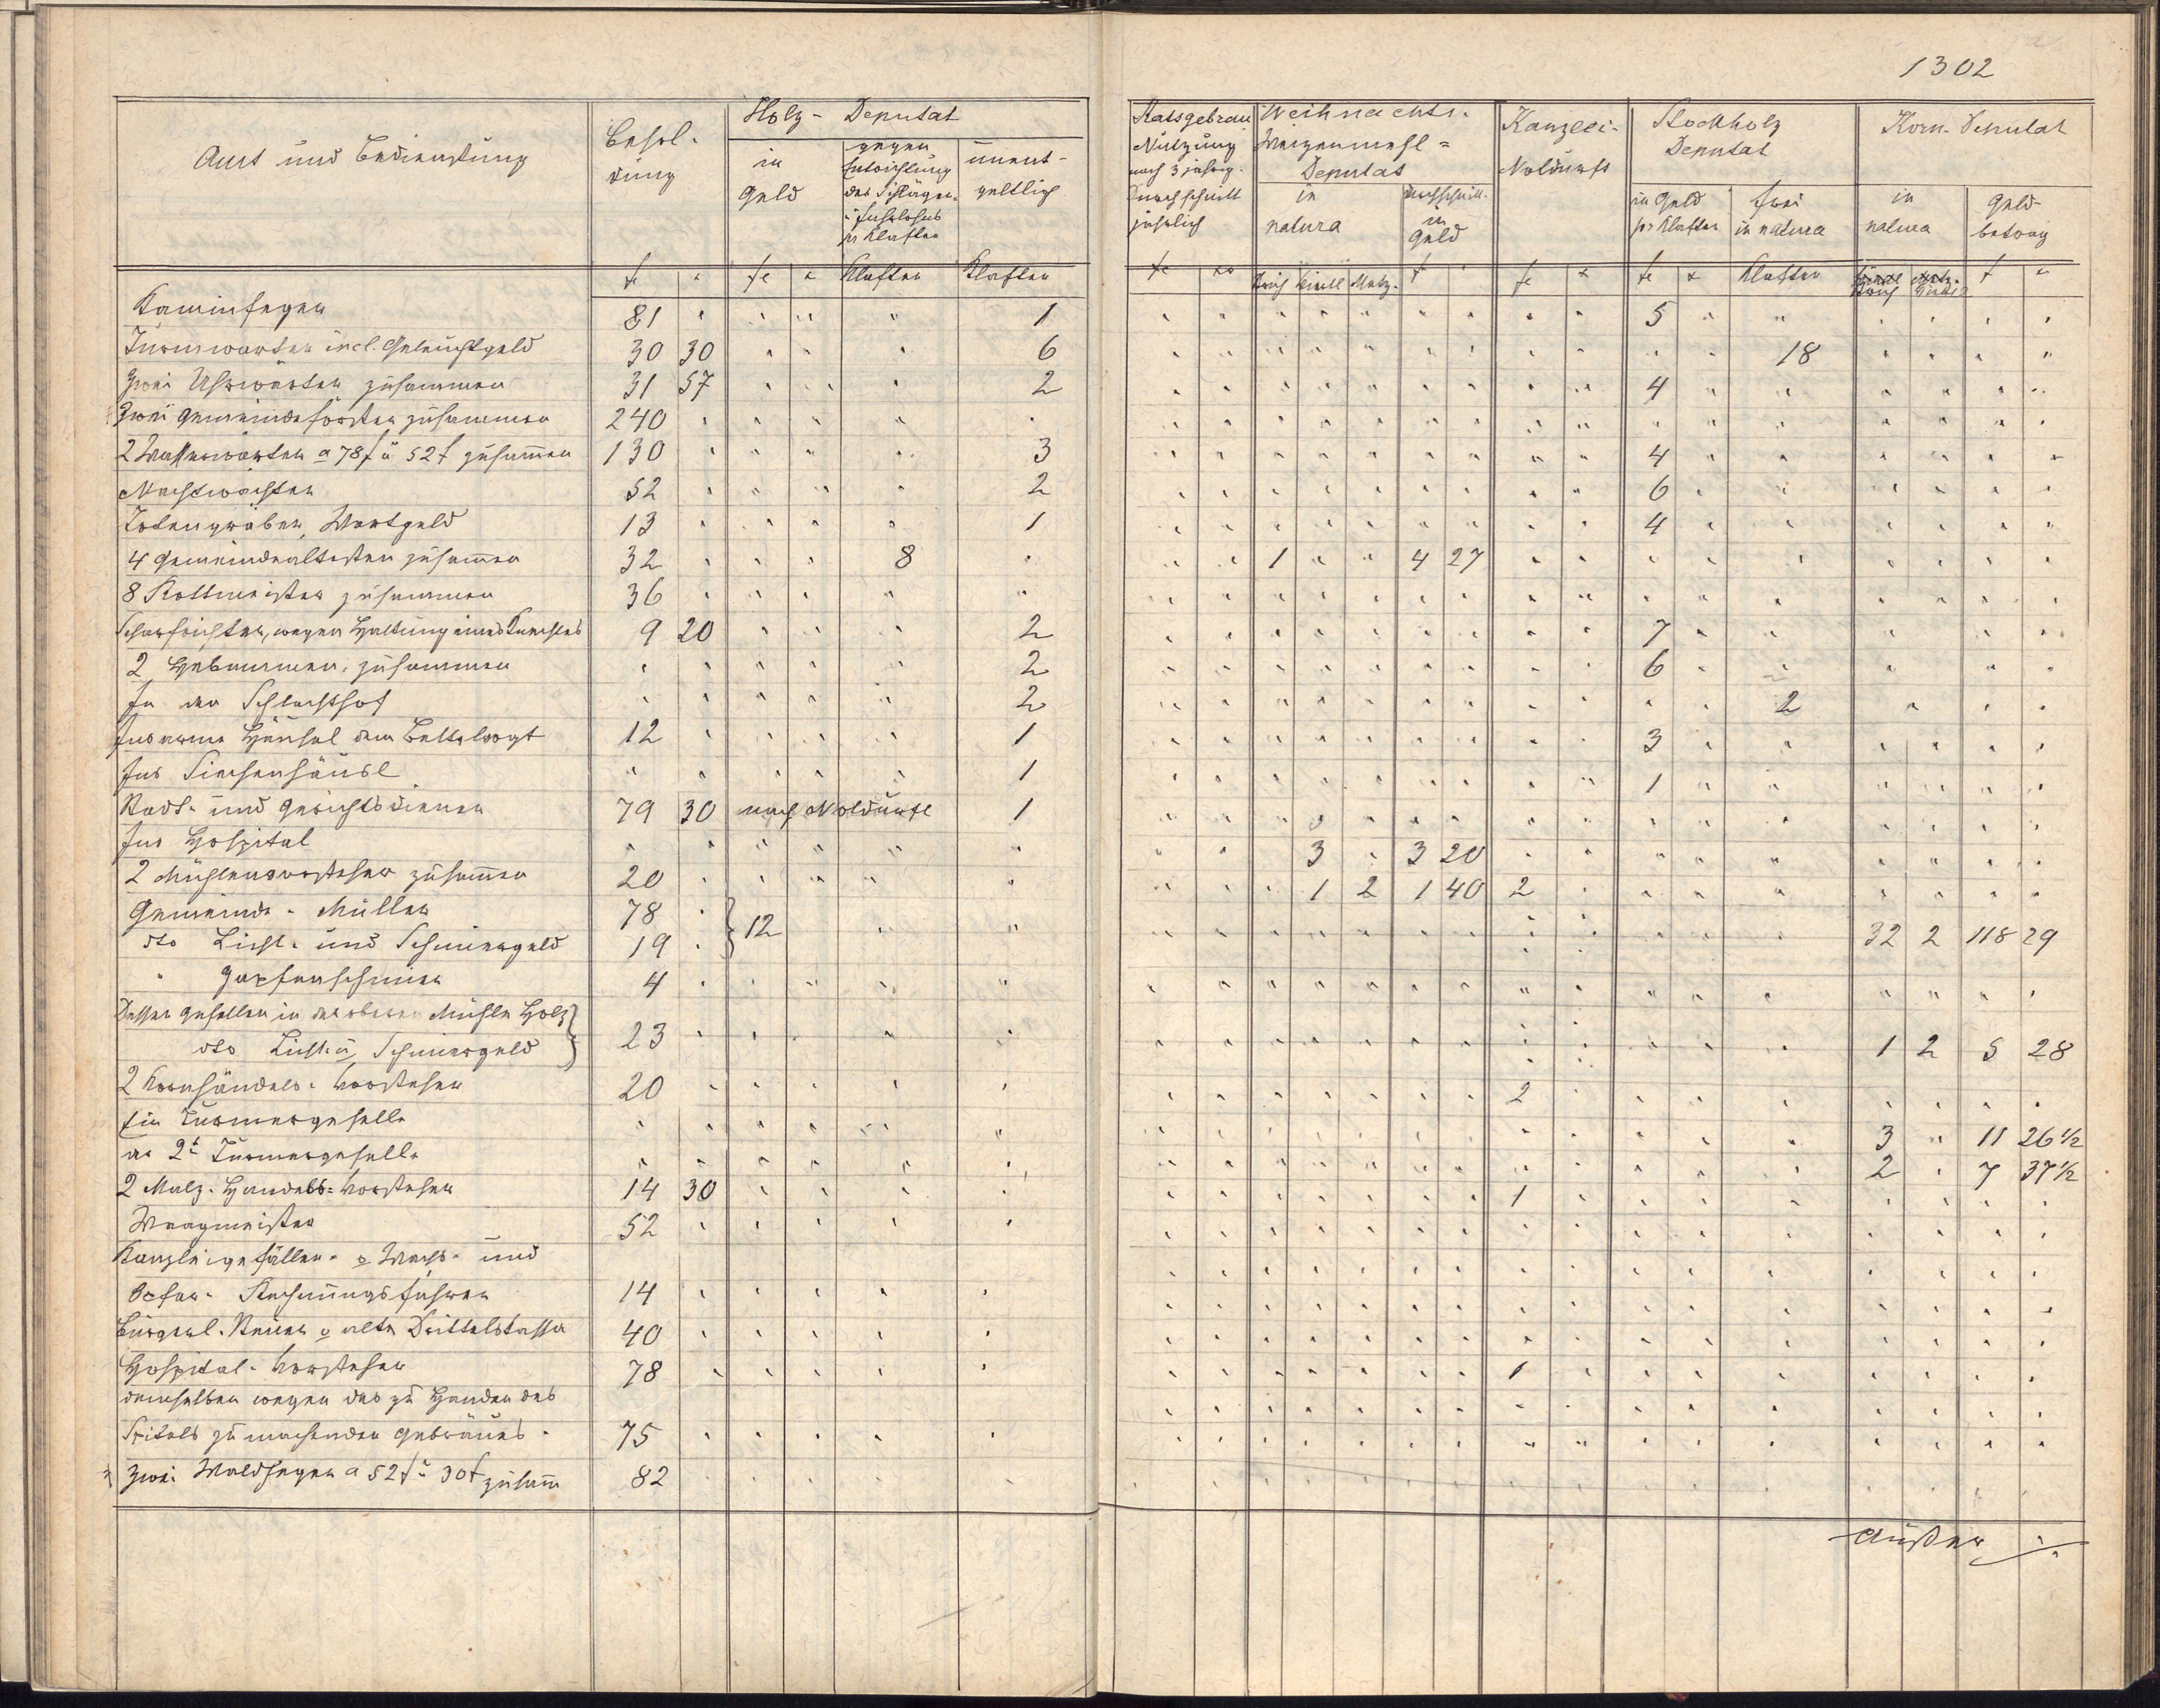 1302
Amt und Bedienstung
Besol-
dung
Holz- Deputat
in
Geld
gegen
Entrichtung
des Schläger-
u Fuhrlohns
pr Klafter
unent-
geltlich
Ratsgebräu
Nutzung
nach 3 jährig.
Durchschnitt
jährlich
Weihnachts-
Weizenmehl=
Deputat
in
natura
durchschnitt.
in
Geld
Kanzlei-
Notdurft
Stockholz
Deputat
in Geld
pr Klafter
frei
in natura
Korn- Deputat
in
natura
Geld-
betrag
Klafter Klafter Strich Viertl Metz. Klafter
Kaminfeger 81 " " " " 1 " " " " " " " " " 5 " " " " " "
Turmwarter incl. Geleuchtgeld 30 30 " " " 6 " " " " " " " " " " " 18 " " " "
Zwei Uhrwarter zusammen 31 57 " " " 2 " " " " " " " " " 4 " " " " " "
Zwei Gemeindeförster zusammen 240 " " " " " " " " " " " " " " " " " " " " "
2 Wasserwarter a 78 f u 52 f zusammen 130 " " " " 3 " " " " " " " " " 4 " " " " " "
Nachtwächter 52 " " " " 2 " " " " " " " " " 6 " " " " " "
Totengräber, Wartgeld 13 " " " " 1 " " " " " " " " " 4 " " " " " "
4 Gemeindeältesten zusammen 32 " " " 8 " " " 1 " " 4 27 " " " " " " " " "
8 Rottmeister zusammen 36 " " " " " " " " " " " " " " " " " " " " "
Scharfrichter, wegen Haltung eines Knechtes 9 20 " " " 2 " " " " " " " " " 7 " " " " "
2 Hebammen, zusammen " " " " " 2 " " " " " " " " " 6 " " " " "
In der Schlachthof " " " " " 2 " " " " " " " " " " " 2 " " "
Ins arme Häusel dem Bettelvogt 12 " " " " 1 " " " " " " " " " 3 " " " " " "
Ins Siechenhäusl " " " " " 1 " " " " " " " " " 1 " " " " " "
Stadt- und Gerichtsdiener 79 30 nach Notdurft 1 " " " " " " " " " " " " " " " "
Ins Hospital " " " " " " " " 3 " 3 20 " " " " " " " " "
2 Mühlenvorsteher zusammen 20 " " " " " " " " 1 2 1 40 2 " " " " " " " "
Gemeinde- Müller 78 "
dto Licht- und Schmiergeld 19 " } 12 " " " " " " " " " " " " " " 32 2 118 29
" Zapfenschmier 4 " " " " " " " " " " " " " " " " " " " " "
Dessen Gesellen in der oberen Mühle Holz
dto Licht u Schmiergeld } 23 " " " " " " " " " " " " " " " " " 1 2 5 28
2 Kornhändels- Vorsteher 20 " " " " " " " " " " " " 2 " " " " " " " "
Ein Turmergeselle " " " " " " " " " " " " " " " " " " 3 " 11 26 1/2
der 2t Turmergeselle " " " " " " " " " " " " " " " " " " 2 " 7 37 1/2
2 Malz- Handels= Vorsteher 14 30 " " " " " " " " " " " 1 " " " " " " " "
Waagmeister 52 " " " " " " " " " " " " " " " " " " " " "
Kanzleigefällen- o Wachs- und
Opfer- Rechnungsführer 14 " " " " " " " " " " " " " " " " " " " " "
Bürgerl. Steuer o alte Drittelskassa 40 " " " " " " " " " " " " " " " " " " " " "
Hospital- Vorsteher 78 " " " " " " " " " " " " 1 " " " " " " " "
demselben wegen des zu Handen des
Spitals zu machenden Gebräues- 75 " " " " " " " " " " " " " " " " " " " " "
Zwei Waldheger a 52 f u 30 f zusamm 82 " " " " " " " " " " " " " " " " " " " " "